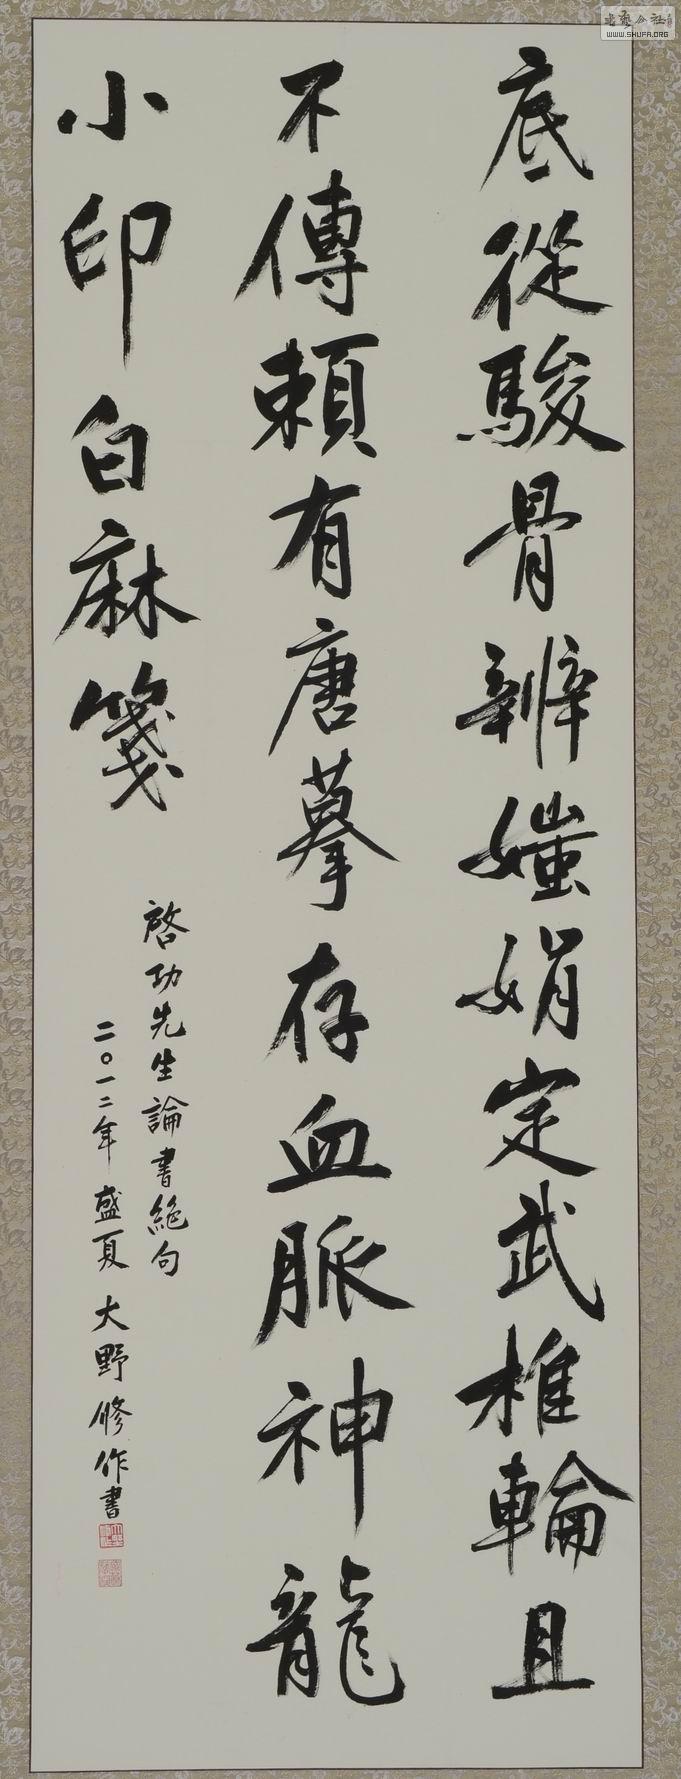 底從駿骨辨媸娟定武椎輪且
不傳賴有唐摹存血脈神龍
小印白麻箋
啓功先生論書絕句
二〇一二年盛夏大野修作書
WWW.SHUFA.ORG